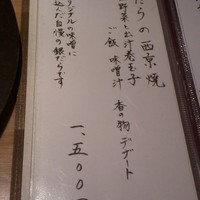 だらの西京焼
野菜と出汁巻玉子
ご飯 味噌汁 香の物 デザート
ジナル味噌に
込んだ自慢の銀だらです
一、五〇〇